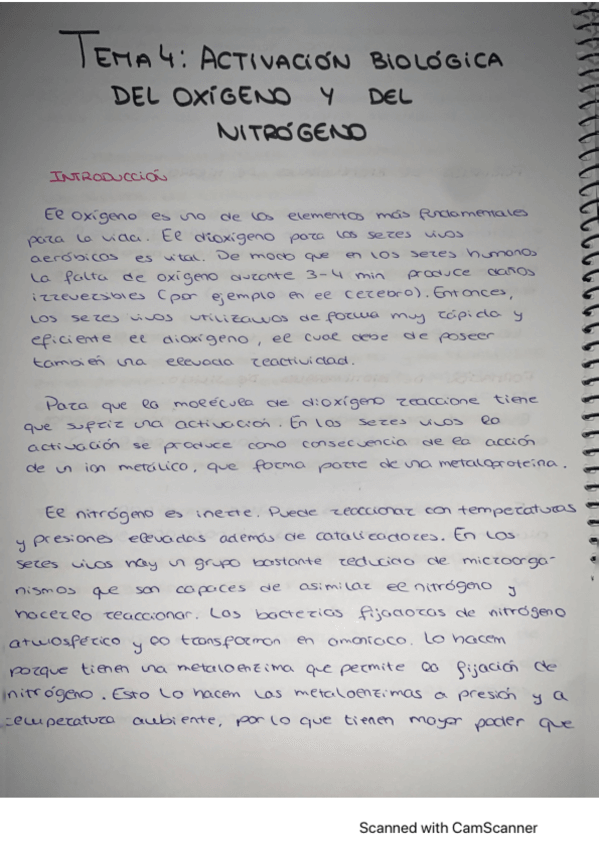 TEMA 4: ACTIVACIÓN BIOLÓGICA
DEL OXÍGENO Y DEL
NITRÓGENO
INTRODUCCIÓN
El oxígeno es uno de los elementos más fundamentales
para la vida. El dioxígeno para los seres vivos
aeróbicos es vital. De modo que en los seres humanos
la falta de oxígeno durante 3-4 min produce daños
irreversibles (por ejemplo en el cerebro). Entonces,
los seres vivos utilizamos de forma muy rápida y
eficiente el dioxígeno, el cual debe de poseer
también una elevada reactividad.
Para que la molécula de dioxígeno reaccione tiene
que sufrir una activación. En los seres vivos la
activación se produce como consecuencia de la acción
de un ion metálico, que forma parte de una metaloproteína.
El nitrógeno es inerte. Puede reaccionar con temperaturas
y presiones elevadas además de catalizadores. En los
seres vivos hay un grupo bastante reducido de microorga-
nismos que son capaces de asimilar el nitrógeno y
hacerlo reaccionar. Los bacterias fijadoras de nitrógeno
atmosférico y lo transforman en amoníaco. Lo hacen
porque tienen una metaloenzima que permite la fijación de
nitrógeno. Esto lo hacen las metaloenzimas a presión y a
temperatura ambiente, por lo que tienen mayor poder que
Scanned with CamScanner